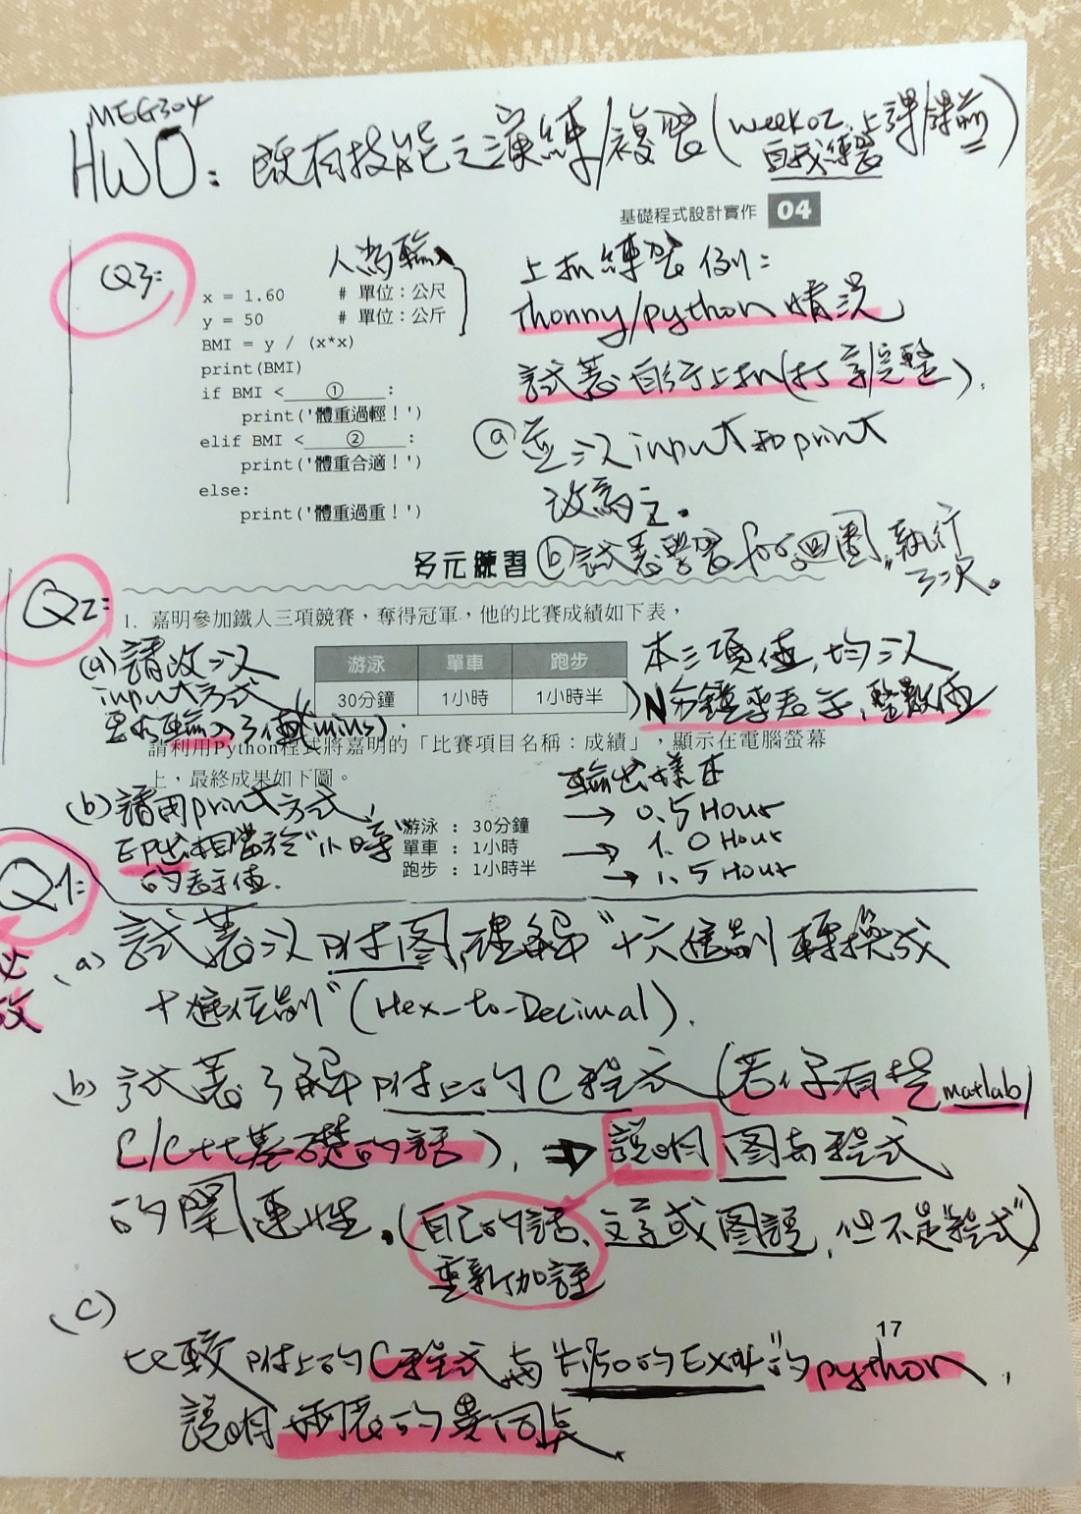 MEG304
HW0: 既有技能之演練/複習(week02 上課/課前
自我練習)
基礎程式設計實作 04
Q3:
人為輸入
x = 1.60 # 單位：公尺
y = 50 # 單位：公斤
BMI = y / (x*x)
print(BMI)
if BMI < ① :
print('體重過輕！')
elif BMI < ② :
print('體重合適！')
else:
print('體重過重！')
上机練習例:
Thonny/python 情況
試著自行上机(打字/完整).
ⓐ 並以input和print
改為主。
ⓑ試著學習for迴圈,執行
3次。
多元練習
Q2:
1. 嘉明參加鐵人三項競賽，奪得冠軍，他的比賽成績如下表，
(a)請改以
input方式
要求輸入3值(mins).
游泳 單車 跑步
30分鐘 1小時 1小時半
本三項值,均以
N分鐘來表示,整數值
請利用Python程式將嘉明的「比賽項目名稱：成績」，顯示在電腦螢幕
上，最終成果如下圖。
(b)請用print方式,
印出相當於"小時"
的表示值.
輸出樣本
游泳 : 30分鐘 → 0.5 Hour
單車 : 1小時 → 1.0 Hour
跑步 : 1小時半 → 1.5 Hour
Q1:
必
(a) 試著以附图,理解"十六進制轉換成
十進位制"(Hex-to-Decimal).
(b) 試著了解附上的C程式(若你有提matlab/
C/C++基礎的話), ⇒ 說明图与程式
的關連性.(自己的話、文字或图說,但不是"程式")
重新加註
(c)
比較附上的C程式与"P.150的Ex4"的python,
說明兩者的異同点.
17